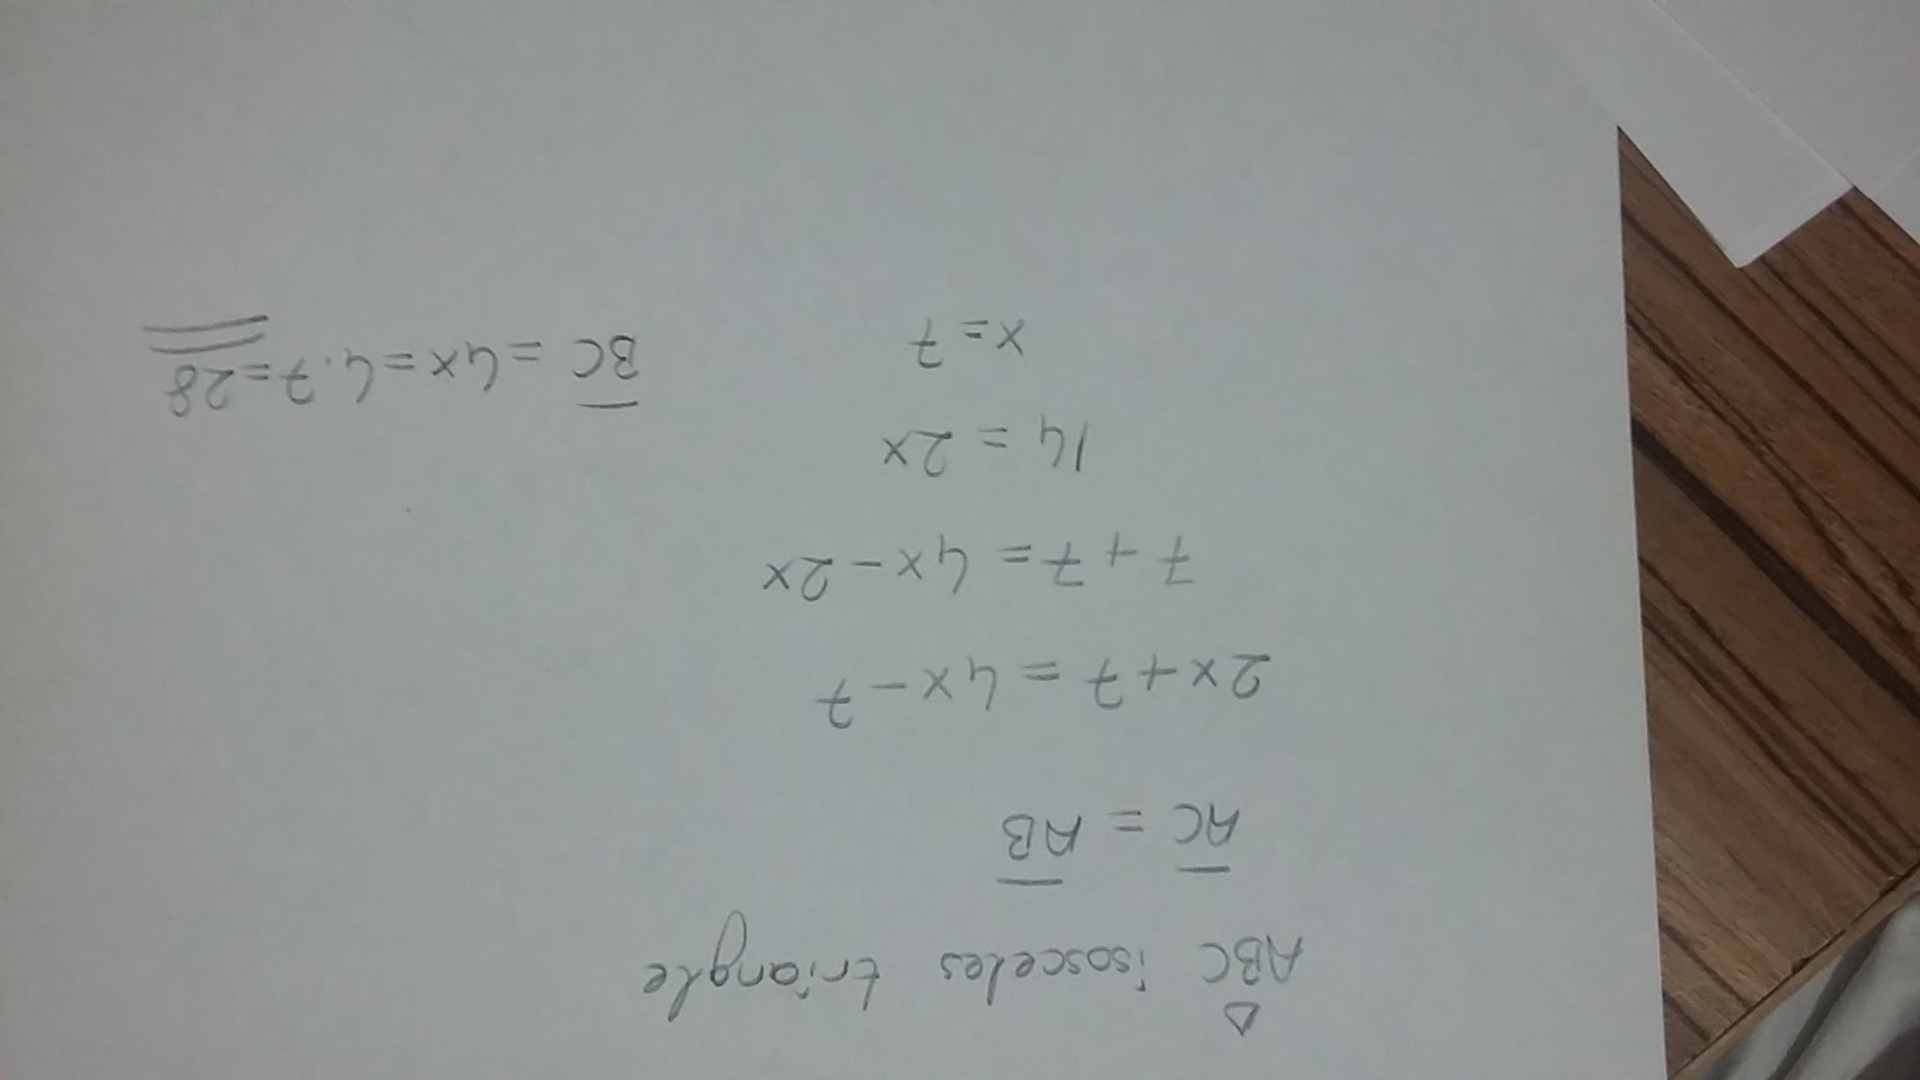 △
ABC isosceles triangle
AC = AB
2x+7 = 4x-7
7+7 = 4x-2x
14 = 2x
x=7
BC = 4x = 4.7=28